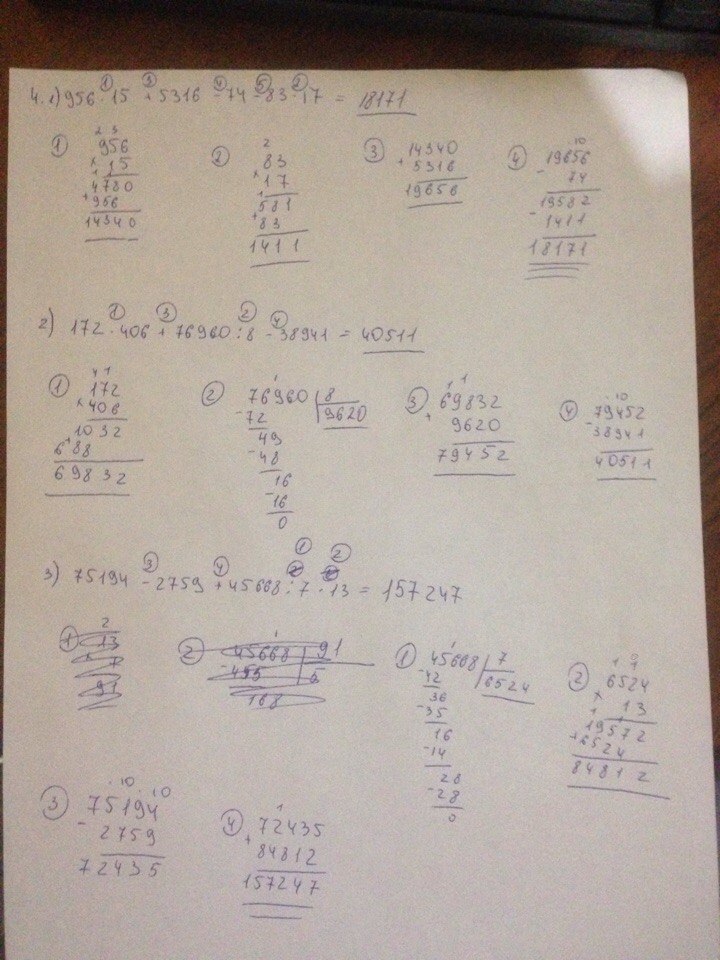 4. 1) 956 · 15 + 5316 - 74 - 83 · 17 = 18171
① ③ ④ ⑤ ②
① 956 × 15
4780
+ 956
14340
② 83 × 17
581
+ 83
1411
③ 14340
+ 5316
19656
④ 19656
- 74
19582
- 1411
18171
2) 172 · 406 + 76960 : 8 - 38941 = 40511
① ③ ② ④
① 172 × 406
1032
688
69832
② 76960 | 8
9620
-72
49
-48
16
-16
0
③ 69832
+ 9620
79452
④ 79452
- 38941
40511
3) 75194 - 2759 + 45668 : 7 · 13 = 157247
③ ④ ① ②
① 13 × 7
91
② 45668 | 91
- 455 | 5
168
① 45668 | 7
6524
-42
36
-35
16
-14
28
-28
0
② 6524
× 13
19572
+ 6524
84812
③ 75194
- 2759
72435
④ 72435
+ 84812
157247